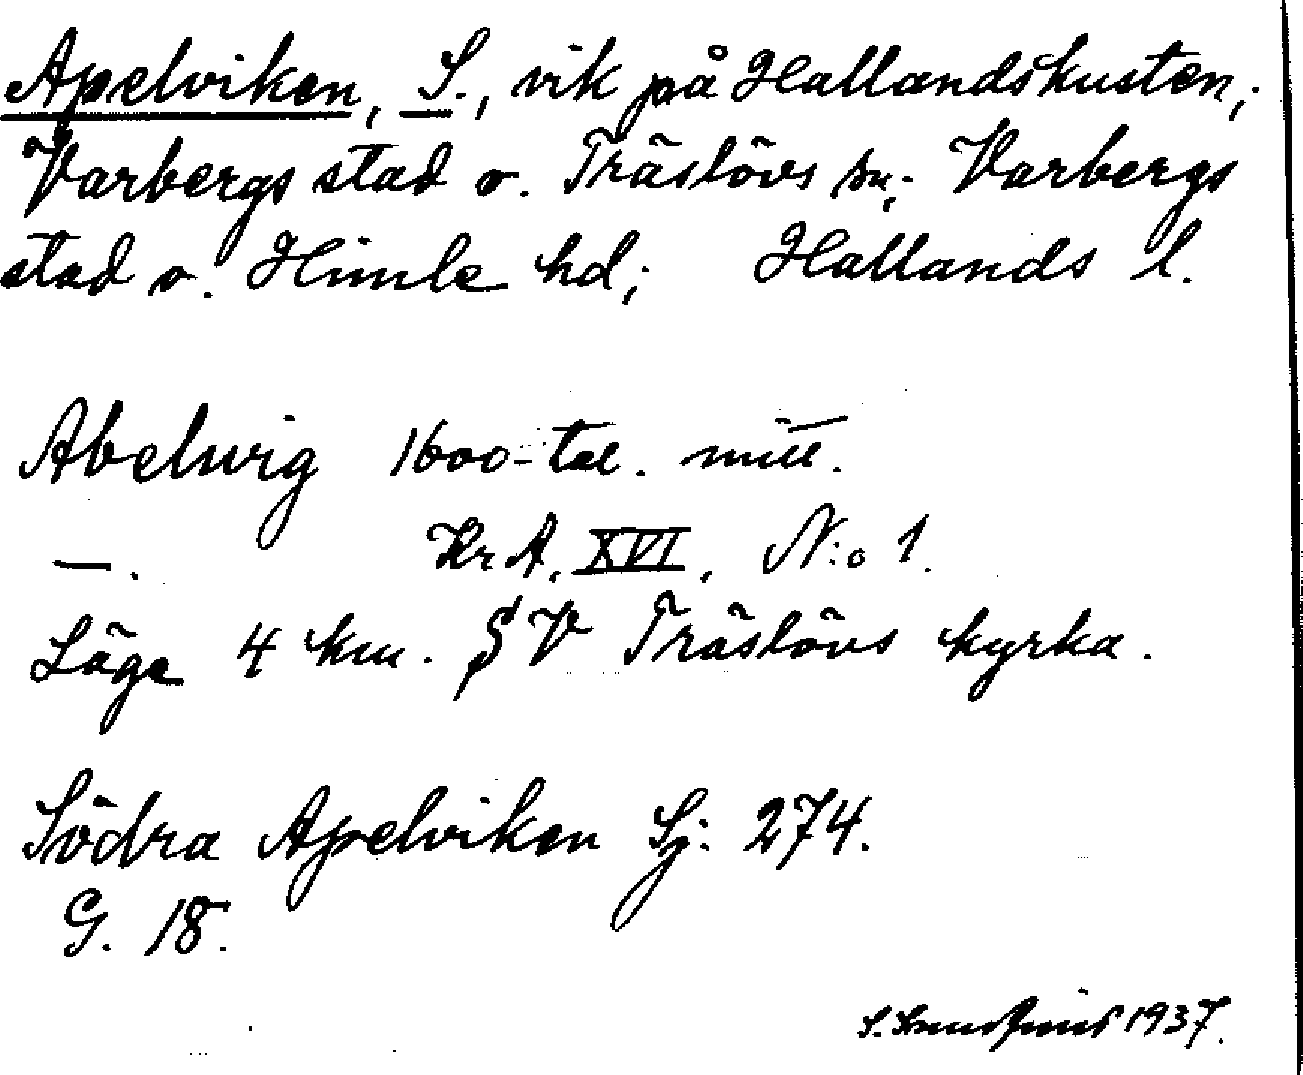 Apelviken, S., vik på Hallandskusten,
Varbergs stad o. Träslövs sn; Varbergs
stad o. Himle hd; Hallands l.
Abelwig 1600-tal. mitt.
—. KrA, XVI, N:o 1.
Läge 4 km. SV Träslövs kyrka.
Södra Apelviken Sj: 274.
G. 18.
S. 1937.